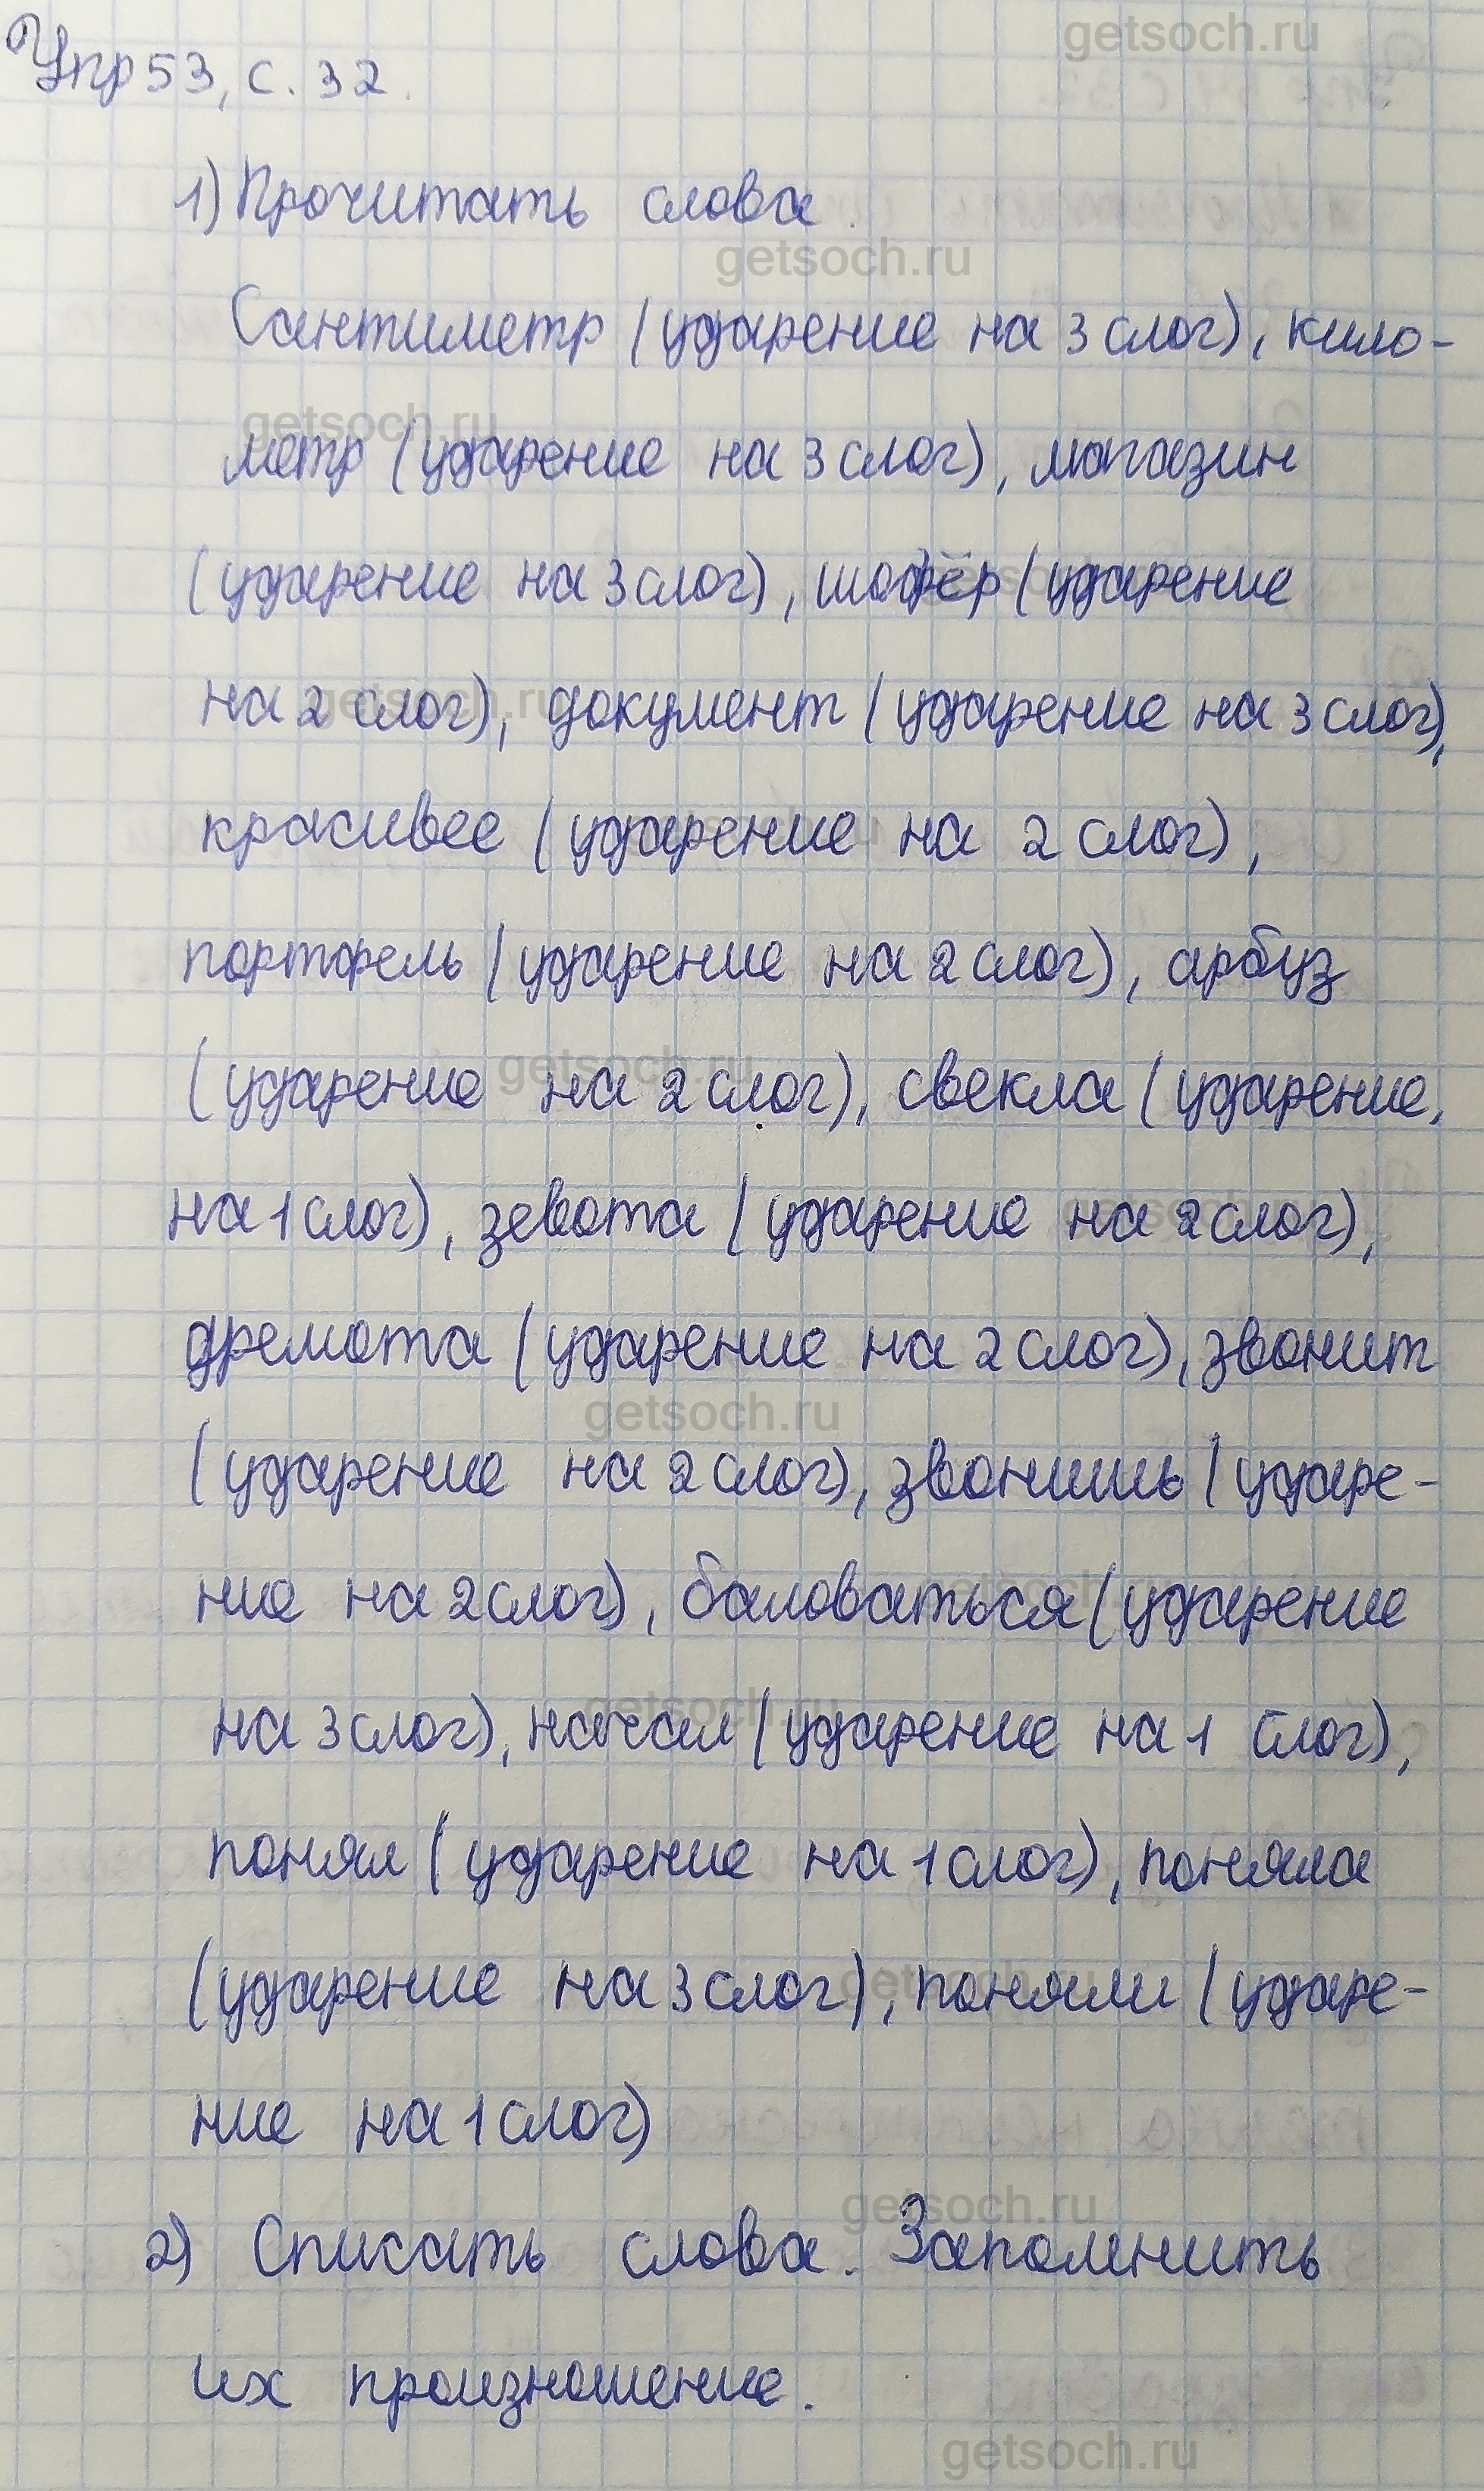 getsoch.ru
Упр 53, с. 32.
1) Прочитать слова.
getsoch.ru
Сантиметр (ударение на 3 слог), кило-
getsoch.ru
метр (ударение на 3 слог), магазин
(ударение на 3 слог), шофёр (ударение
на 2 слог), документ (ударение на 3 слог),
getsoch.ru
красивее (ударение на 2 слог),
портфель (ударение на 2 слог), арбуз
getsoch.ru
(ударение на 2 слог), свекла (ударение,
на 1 слог), зевота (ударение на 2 слог),
дремота (ударение на 2 слог), звонит
getsoch.ru
(ударение на 2 слог), звонишь (ударе-
ние на 2 слог), баловаться (ударение
getsoch.ru
на 3 слог), начал (ударение на 1 слог),
понял (ударение на 1 слог), поняла
getsoch.ru
(ударение на 3 слог), поняли (ударе-
ние на 1 слог)
getsoch.ru
2) Списать слова. Запомнить
их произношение.
getsoch.ru